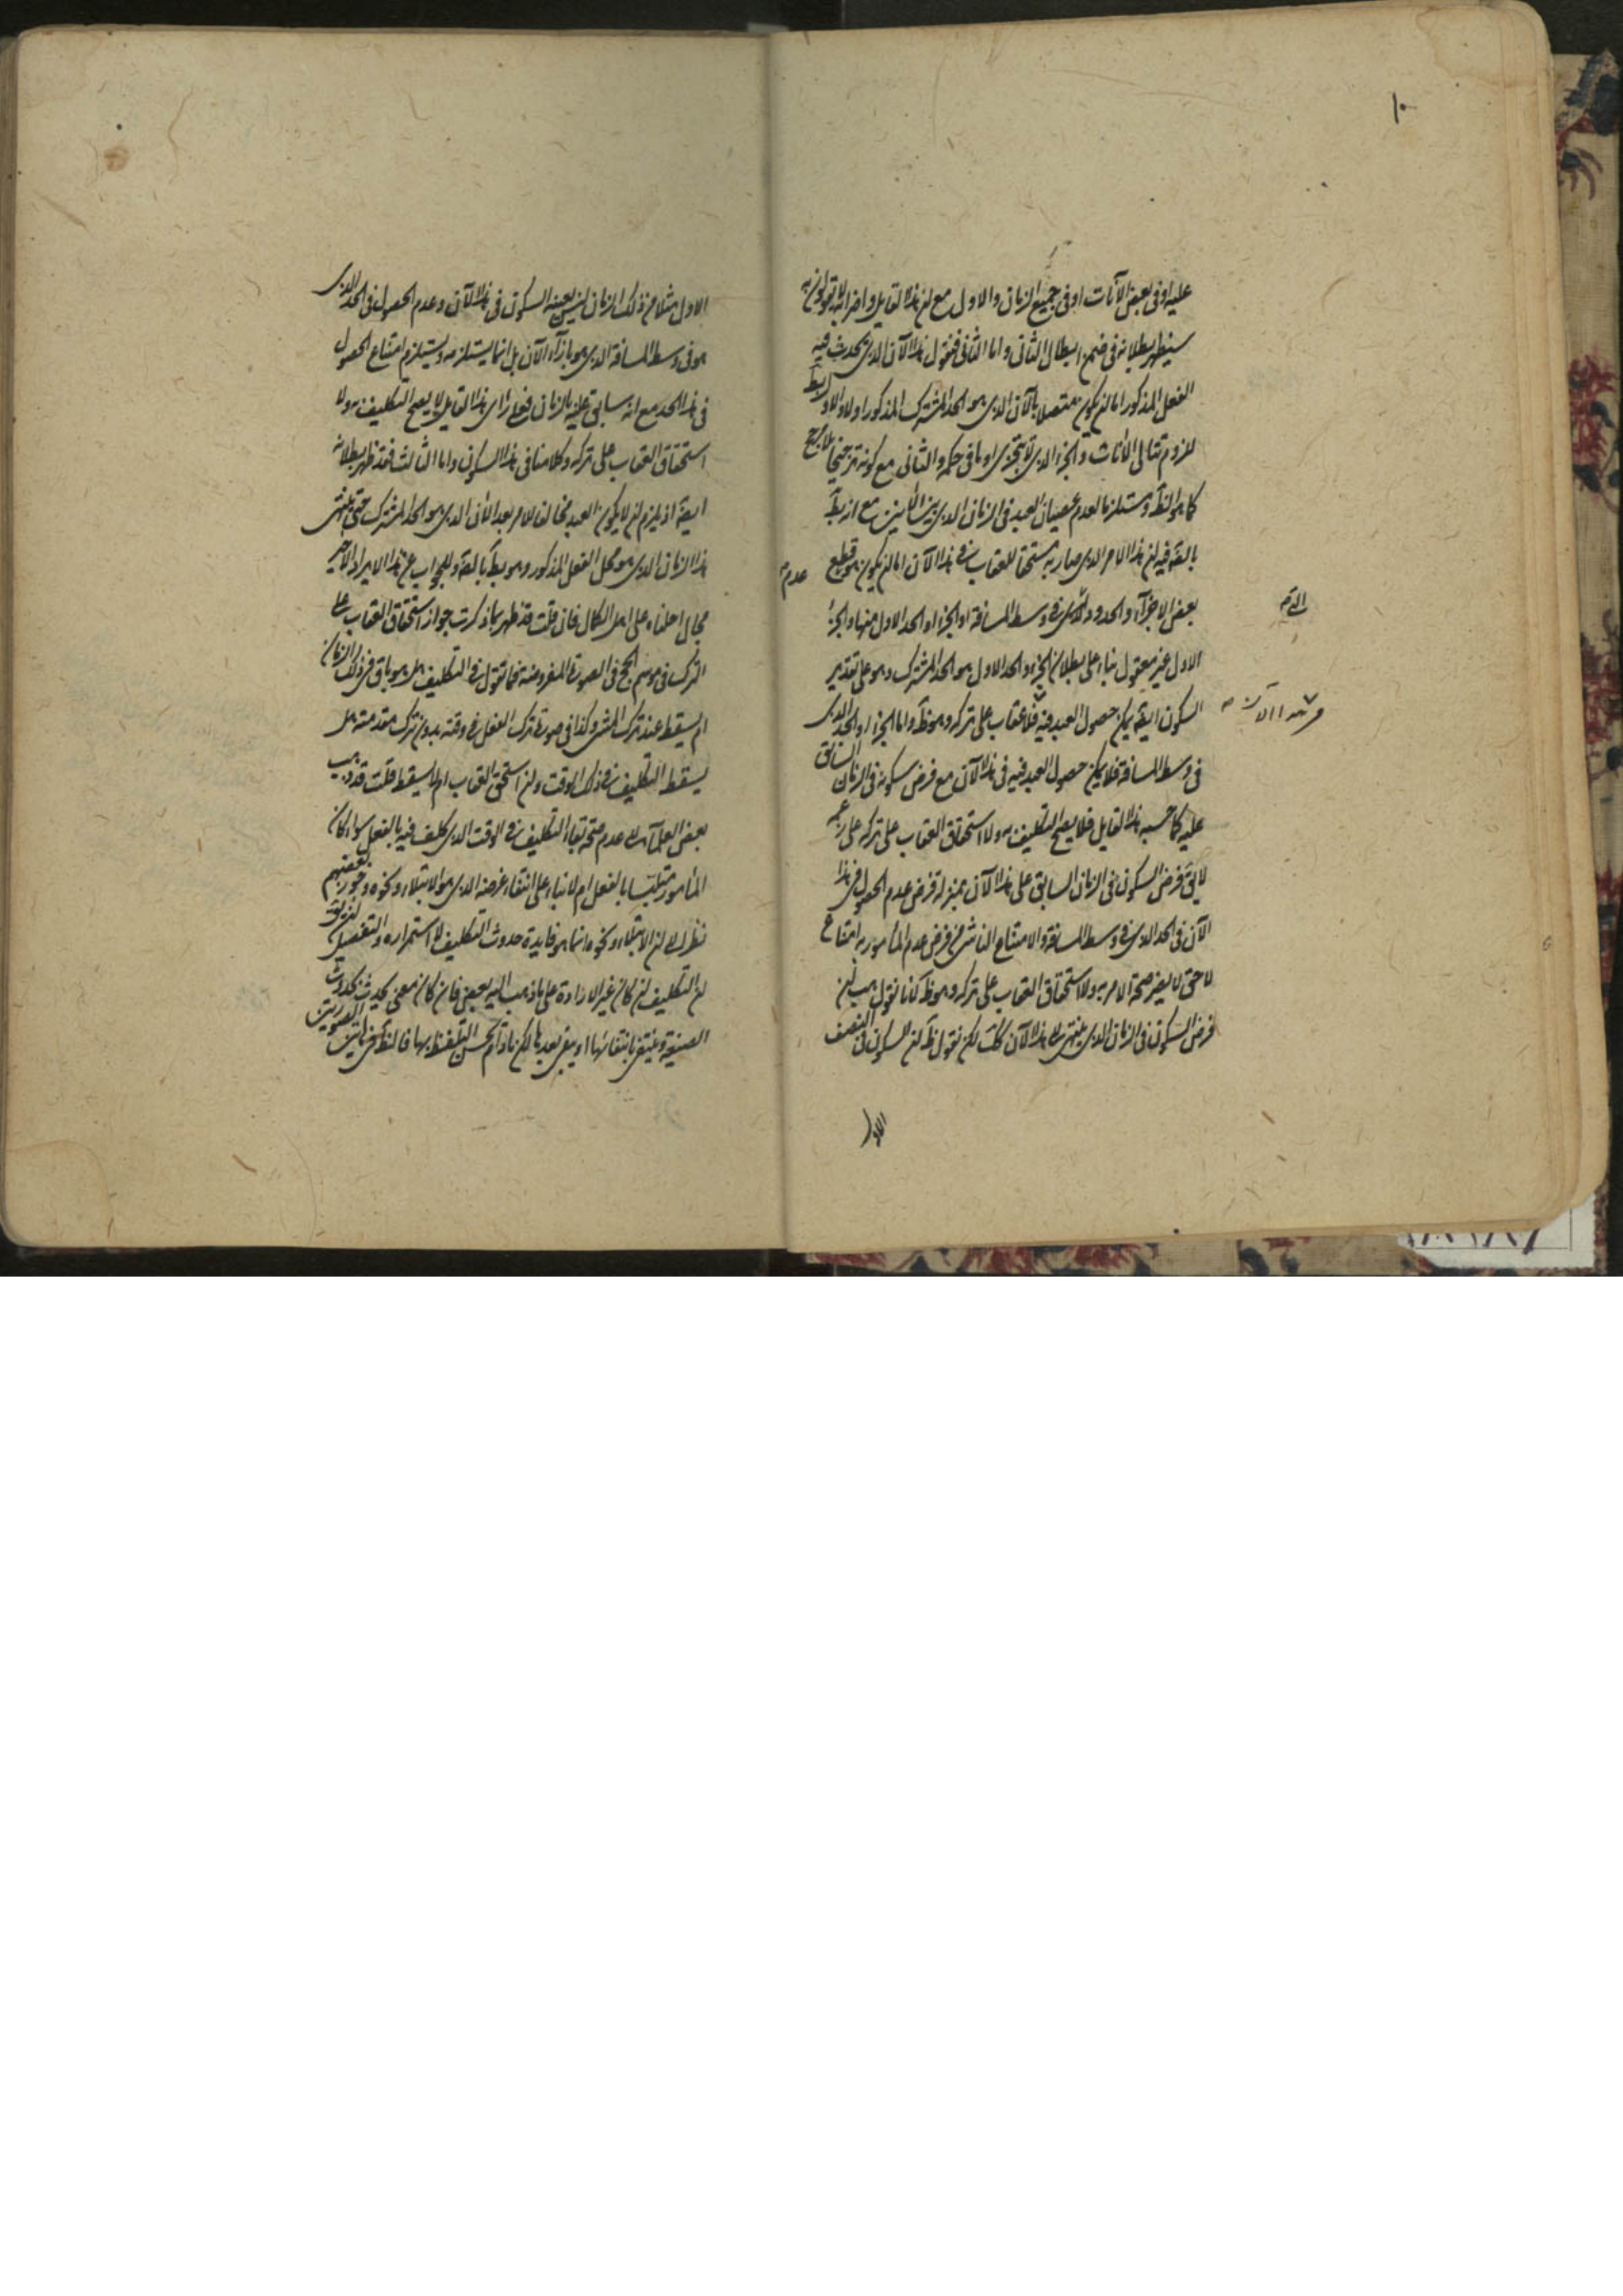 ١٠
عليه او في بعض الآنات او في جميع الزمان والاول مع ان هذا القايل واضرابه لا يقولون به
سيظهر بطلانه في ضمن ابطال الثاني واما الثاني فنقول هذا الآن الذي يحدث فيه
الفعل المذكور اما ان يكون متصلا بالآن الذي هو الحد المشترك المذكور اولا والاول بط
للزوم تتالي الآنات والجزء الذي لا يتجزى او ما في حكمه والثاني مع كونه ترجيحا بلا مرجح
كما هو الظ مستلزما لعدم عصيان العبد في الزمان الذي بين الآنين مع انه بط
بالضه فيه ان هذا الامر الذي صار به مستحقا للعقاب في هذا الآن اما ان يكون هو قطع
عدم
بعض الاجزاء والحدود الذي في وسط المسافة او الجزء او الحد الاول منها والجزء
الاول غير معقول بناء على بطلان الجزء والحد الاول هو الحد المشترك وهو على تقدير
السكون ايضه يمكن حصول العبد فيه فلا عقاب على تركه وهو ظ واما الجزء او الحد الذي
في هذا الآن
في وسط المسافة فلا يمكن حصول العبد فيه في هذا الآن مع فرض سكونه في الزمان السابق
عليه كما حسبه هذا القايل فلا يصح التكليف به ولا استحقاق العقاب على تركه على زعمه
لا يق فرض السكون في الزمان السابق على هذا الآن بمنزلة فرض عدم الحصول في هذا
الآن في الحد الذي في وسط المسافة والامتناع الناشي من فرض عدم المأمور به امتناع
لاحق لا يضر صحة الامر به ولا استحقاق العقاب على تركه وهو ظ لانا نقول هب ان
فرض السكون في الزمان الذي ينتهي الى هذا الآن كك لكن نقول ظ ان السكون في النصف
الاول
الاول مثلا من ذلك الزمان ليس بعينه السكون في هذا الآن وعدم الحصول في الحد الذي
هو في وسط المسافة الذي هو بازاء الآن بل انما يستلزمه ويستلزم امتناع الحصول
في هذا الحد مع انه سابق عليه بالزمان فعلى راي هذا القايل لا يصح التكليف به ولا
استحقاق العقاب على تركه وكلامنا في هذا السكون واما الثالث فقد ظهر بطلانه
ايضه اذ يلزم ان لا يكون العبد مخالفا للامر بعد الآن الذي هو الحد المشترك حتى ينتهي
هذا الزمان الذي هو محل الفعل المذكور وهو بط بالضه وللجواب عن هذا الايراد الاخير
مجال احلناه على اهل الكمال فان قلت قد ظهر بما ذكرت جواز استحقاق العقاب على
الترك في موسم الحج في الصورة المفروضة فما تقول في التكليف هل هو باق في ذلك الزمان
ام يسقط عند ترك المشي وكذا في صورة ترك الفعل في وقته بدون ترك مقدمته هل
يسقط التكليف في ذلك الوقت وان استحق العقاب ام لا يسقط قلت قد ذهب
بعض العلماء الى عدم صحة بقاء التكليف في الوقت الذي كلف فيه بالفعل سواء كان
المأمور متلبسا بالفعل ام لا بناء على انتفاء غرضه الذي هو الابتلاء ونحوه وجوز بعضهم
نظرا الى ان الابتلاء ونحوه انما هو فايدة حدوث التكليف لا استمراره والتفصيل ان يق
ان التكليف ان كان غير الارادة على ما ذهب اليه بعض فان كان معنى يحدث بحدوث
الصيغة وينتفي بانتفائها او يبقى بعدها لكن ما دام يحسن التلفظ بها فالظ في هاتين الصورتين